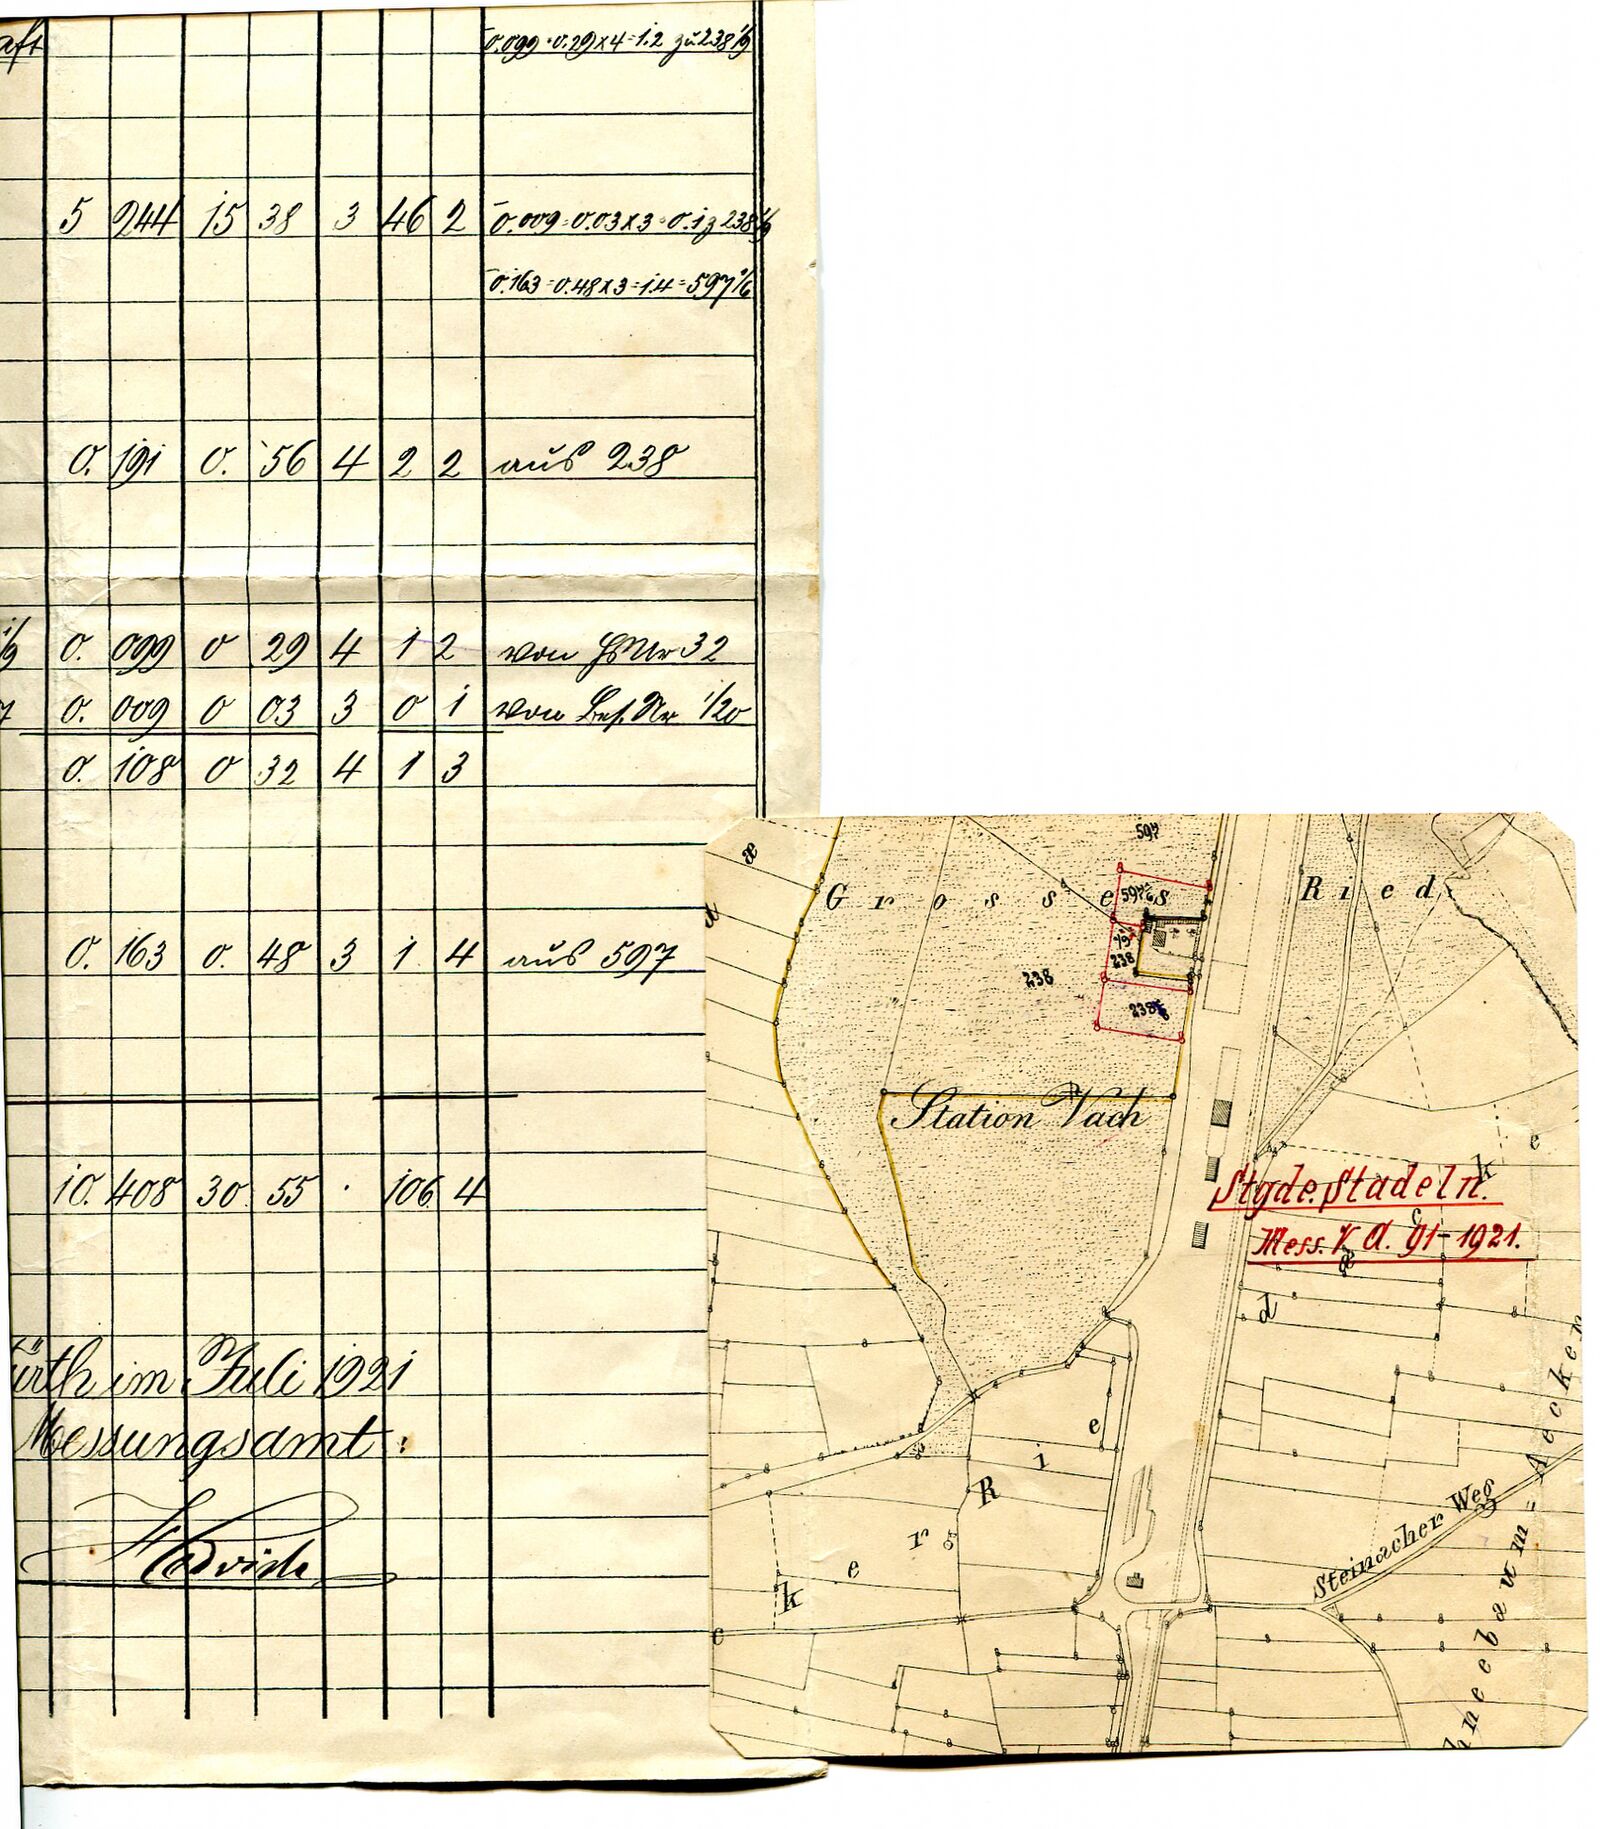 aft
0.099=0.29x4=1.2 zu 238 1/9
5 244 15 38 3 46 2 0.009=0.03x3=0.1 z 238 1/9
0.163=0.48x3=1.4=597 1/6
0. 191 0. 56 4 2 2 aus 238
1/9 0. 099 0 29 4 1 2 von HsNr 32
0. 009 0 03 3 0 1 von Bes. Nr 1/20
0. 108 0 32 4 1 3
0. 163 0. 48 3 1 4 aus 597
10. 408 30 55 . 106 4
ürth im Juli 1921
Messungsamt:
597
Grosses Ried
597 1/6
238
238
238
Station Vach
Stgde. Stadeln.
Mess. V. A. 91-1921.
Steinacher Weg
hneebaum=Aecker